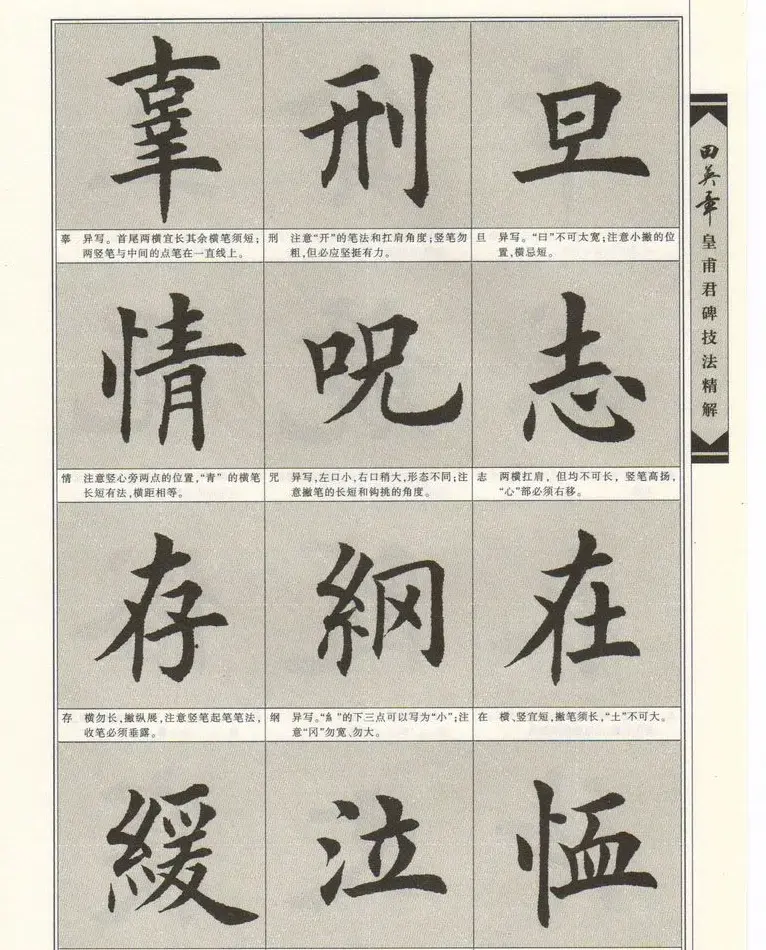 辜 刑 旦
辜 异写。首尾两横宜长其余横笔须短;
两竖笔与中间的点笔在一直线上。
刑 注意“开”的笔法和扛肩角度;竖笔勿
粗,但必应坚挺有力。
旦 异写。“曰”不可太宽;注意小撇的位
置,横忌短。
情 呪 志
情 注意竖心旁两点的位置,“青”的横笔
长短有法,横距相等。
咒 异写,左口小,右口稍大,形态不同;注
意撇笔的长短和钩挑的角度。
志 两横扛肩,但均不可长,竖笔高扬,
“心”部必须右移。
存 綱 在
存 横勿长,撇纵展,注意竖笔起笔笔法,
收笔必须垂露。
纲 异写。“糹”的下三点可以写为“小”;注
意“冈”勿宽、勿大。
在 横、竖宜短,撇笔须长,“土”不可大。
緩 泣 恤
田英章
皇甫君碑技法精解